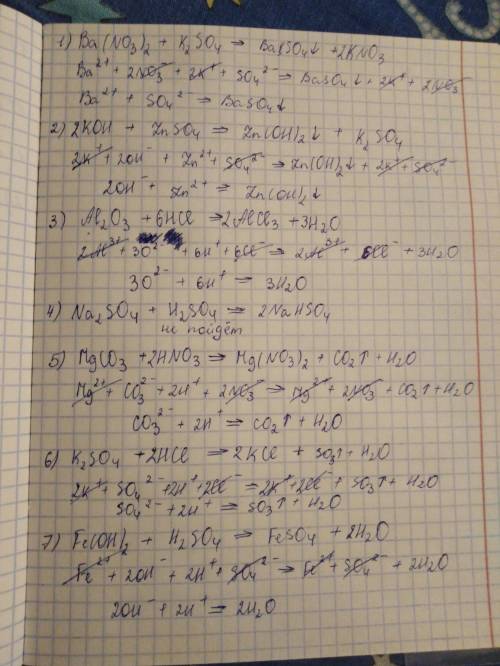 1) Ba(NO3)2 + K2SO4 ⇒ BaSO4↓ + 2KNO3
Ba²⁺ + 2NO3⁻ + 2K⁺ + SO4²⁻ ⇒ BaSO4↓ + 2K⁺ + 2NO3⁻
Ba²⁺ + SO4²⁻ ⇒ BaSO4↓
2) 2KOH + ZnSO4 ⇒ Zn(OH)2↓ + K2SO4
2K⁺ + 2OH⁻ + Zn²⁺ + SO4²⁻ ⇒ Zn(OH)2↓ + 2K⁺ + SO4²⁻
2OH⁻ + Zn²⁺ ⇒ Zn(OH)2↓
3) Al2O3 + 6HCl ⇒ 2AlCl3 + 3H2O
2Al³⁺ + 3O²⁻ + 6H⁺ + 6Cl⁻ ⇒ 2Al³⁺ + 6Cl⁻ + 3H2O
3O²⁻ + 6H⁺ = 3H2O
4) Na2SO4 + H2SO4 = 2NaHSO4
не пойдёт
5) MgCO3 + 2HNO3 ⇒ Mg(NO3)2 + CO2↑ + H2O
Mg²⁺ + CO3²⁻ + 2H⁺ + 2NO3⁻ ⇒ Mg²⁺ + 2NO3⁻ + CO2↑ + H2O
CO3²⁻ + 2H⁺ ⇒ CO2↑ + H2O
6) K2SO4 + 2HCl ⇒ 2KCl + SO3↑ + H2O
2K⁺ + SO4²⁻ + 2H⁺ + 2Cl⁻ = 2K⁺ + 2Cl⁻ + SO3↑ + H2O
SO4²⁻ + 2H⁺ ⇒ SO3↑ + H2O
7) Fe(OH)2 + H2SO4 ⇒ FeSO4 + 2H2O
Fe²⁺ + 2OH⁻ + 2H⁺ + SO4²⁻ ⇒ Fe²⁺ + SO4²⁻ + 2H2O
2OH⁻ + 2H⁺ = 2H2O